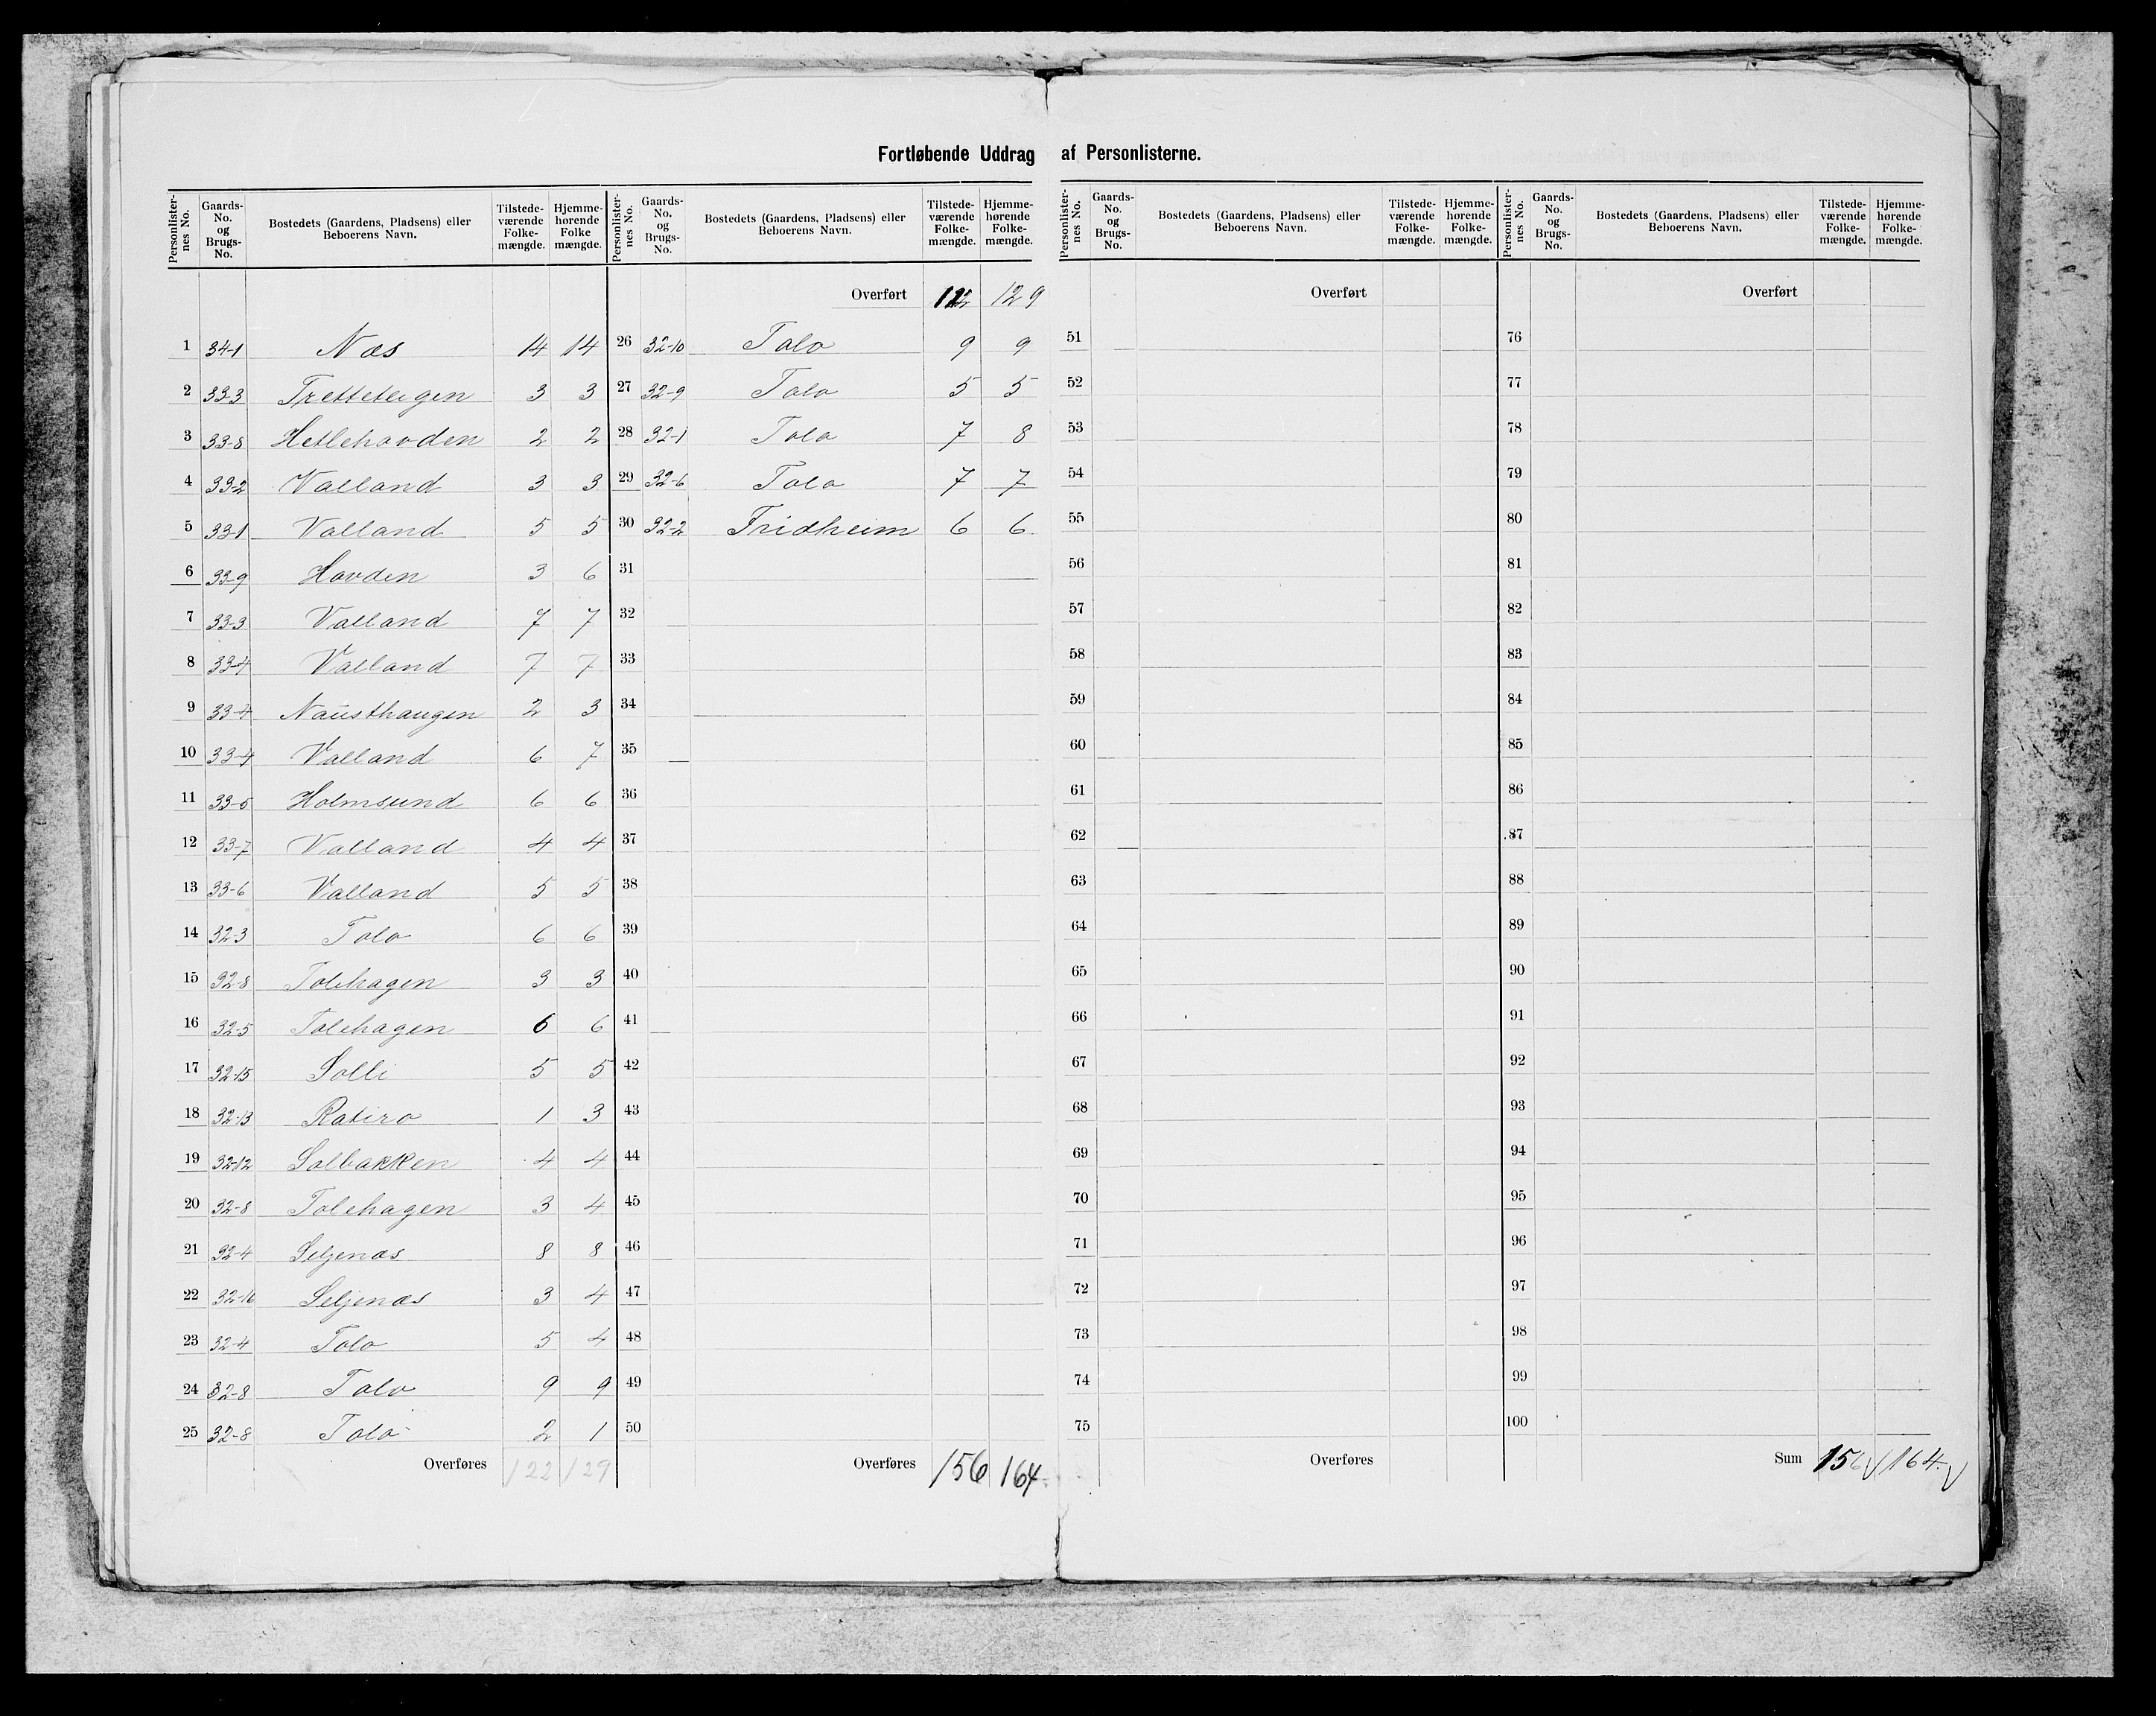 Fortløbende Uddrag af Personlisterne.
Personlisternes No. Gaards-No. og Brugs-No. Bostedets (Gaardens, Pladsens) eller Beboerens Navn. Tilstedeværende Folkemængde. Hjemmehørende Folkemængde.
1 34-1 Næs 14 14
2 33-3 Tretteteigen 3 3
3 33-8 Hetlehovden 2 2
4 33-2 Valland 3 3
5 33-1 Valland 5 5
6 33-9 Hovden 3 6
7 33-3 Valland 7 7
8 33-4 Valland 7 7
9 33-4 Nausthaugen 2 3
10 33-4 Valland 6 7
11 33-5 Holmsund 6 6
12 33-7 Valland 4 4
13 33-6 Valland 5 5
14 32-3 Tolo 6 6
15 32-8 Tolehagen 3 3
16 32-5 Tolehagen 6 6
17 32-15 Solli 5 5
18 32-13 Roliro 1 3
19 32-12 Solbakken 4 4
20 32-8 Tolehagen 3 4
21 32-4 Seljenæs 8 8
22 32-16 Seljenæs 3 4
23 32-4 Tolo 5 4
24 32-8 Tolo 9 9
25 32-8 Tolo 2 1
Overføres 122 129
Personlisternes No. Gaards-No. og Brugs-No. Bostedets (Gaardens, Pladsens) eller Beboerens Navn. Tilstedeværende Folkemængde. Hjemmehørende Folkemængde.
Overført 122 129
26 32-10 Tolo 9 9
27 32-9 Tolo 5 5
28 32-1 Tolo 7 8
29 32-6 Tolo 7 7
30 32-2 Fridheim 6 6
31
32
33
34
35
36
37
38
39
40
41
42
43
44
45
46
47
48
49
50
Overføres 156 164
Personlisternes No. Gaards-No. og Brugs-No. Bostedets (Gaardens, Pladsens) eller Beboerens Navn. Tilstedeværende Folkemængde. Hjemmehørende Folkemængde.
Overført
51
52
53
54
55
56
57
58
59
60
61
62
63
64
65
66
67
68
69
70
71
72
73
74
75
Overføres
Personlisternes No. Gaards-No. og Brugs-No. Bostedets (Gaardens, Pladsens) eller Beboerens Navn. Tilstedeværende Folkemængde. Hjemmehørende Folkemængde.
Overført
76
77
78
79
80
81
82
83
84
85
86
87
88
89
90
91
92
93
94
95
96
97
98
99
100
Sum 156 164